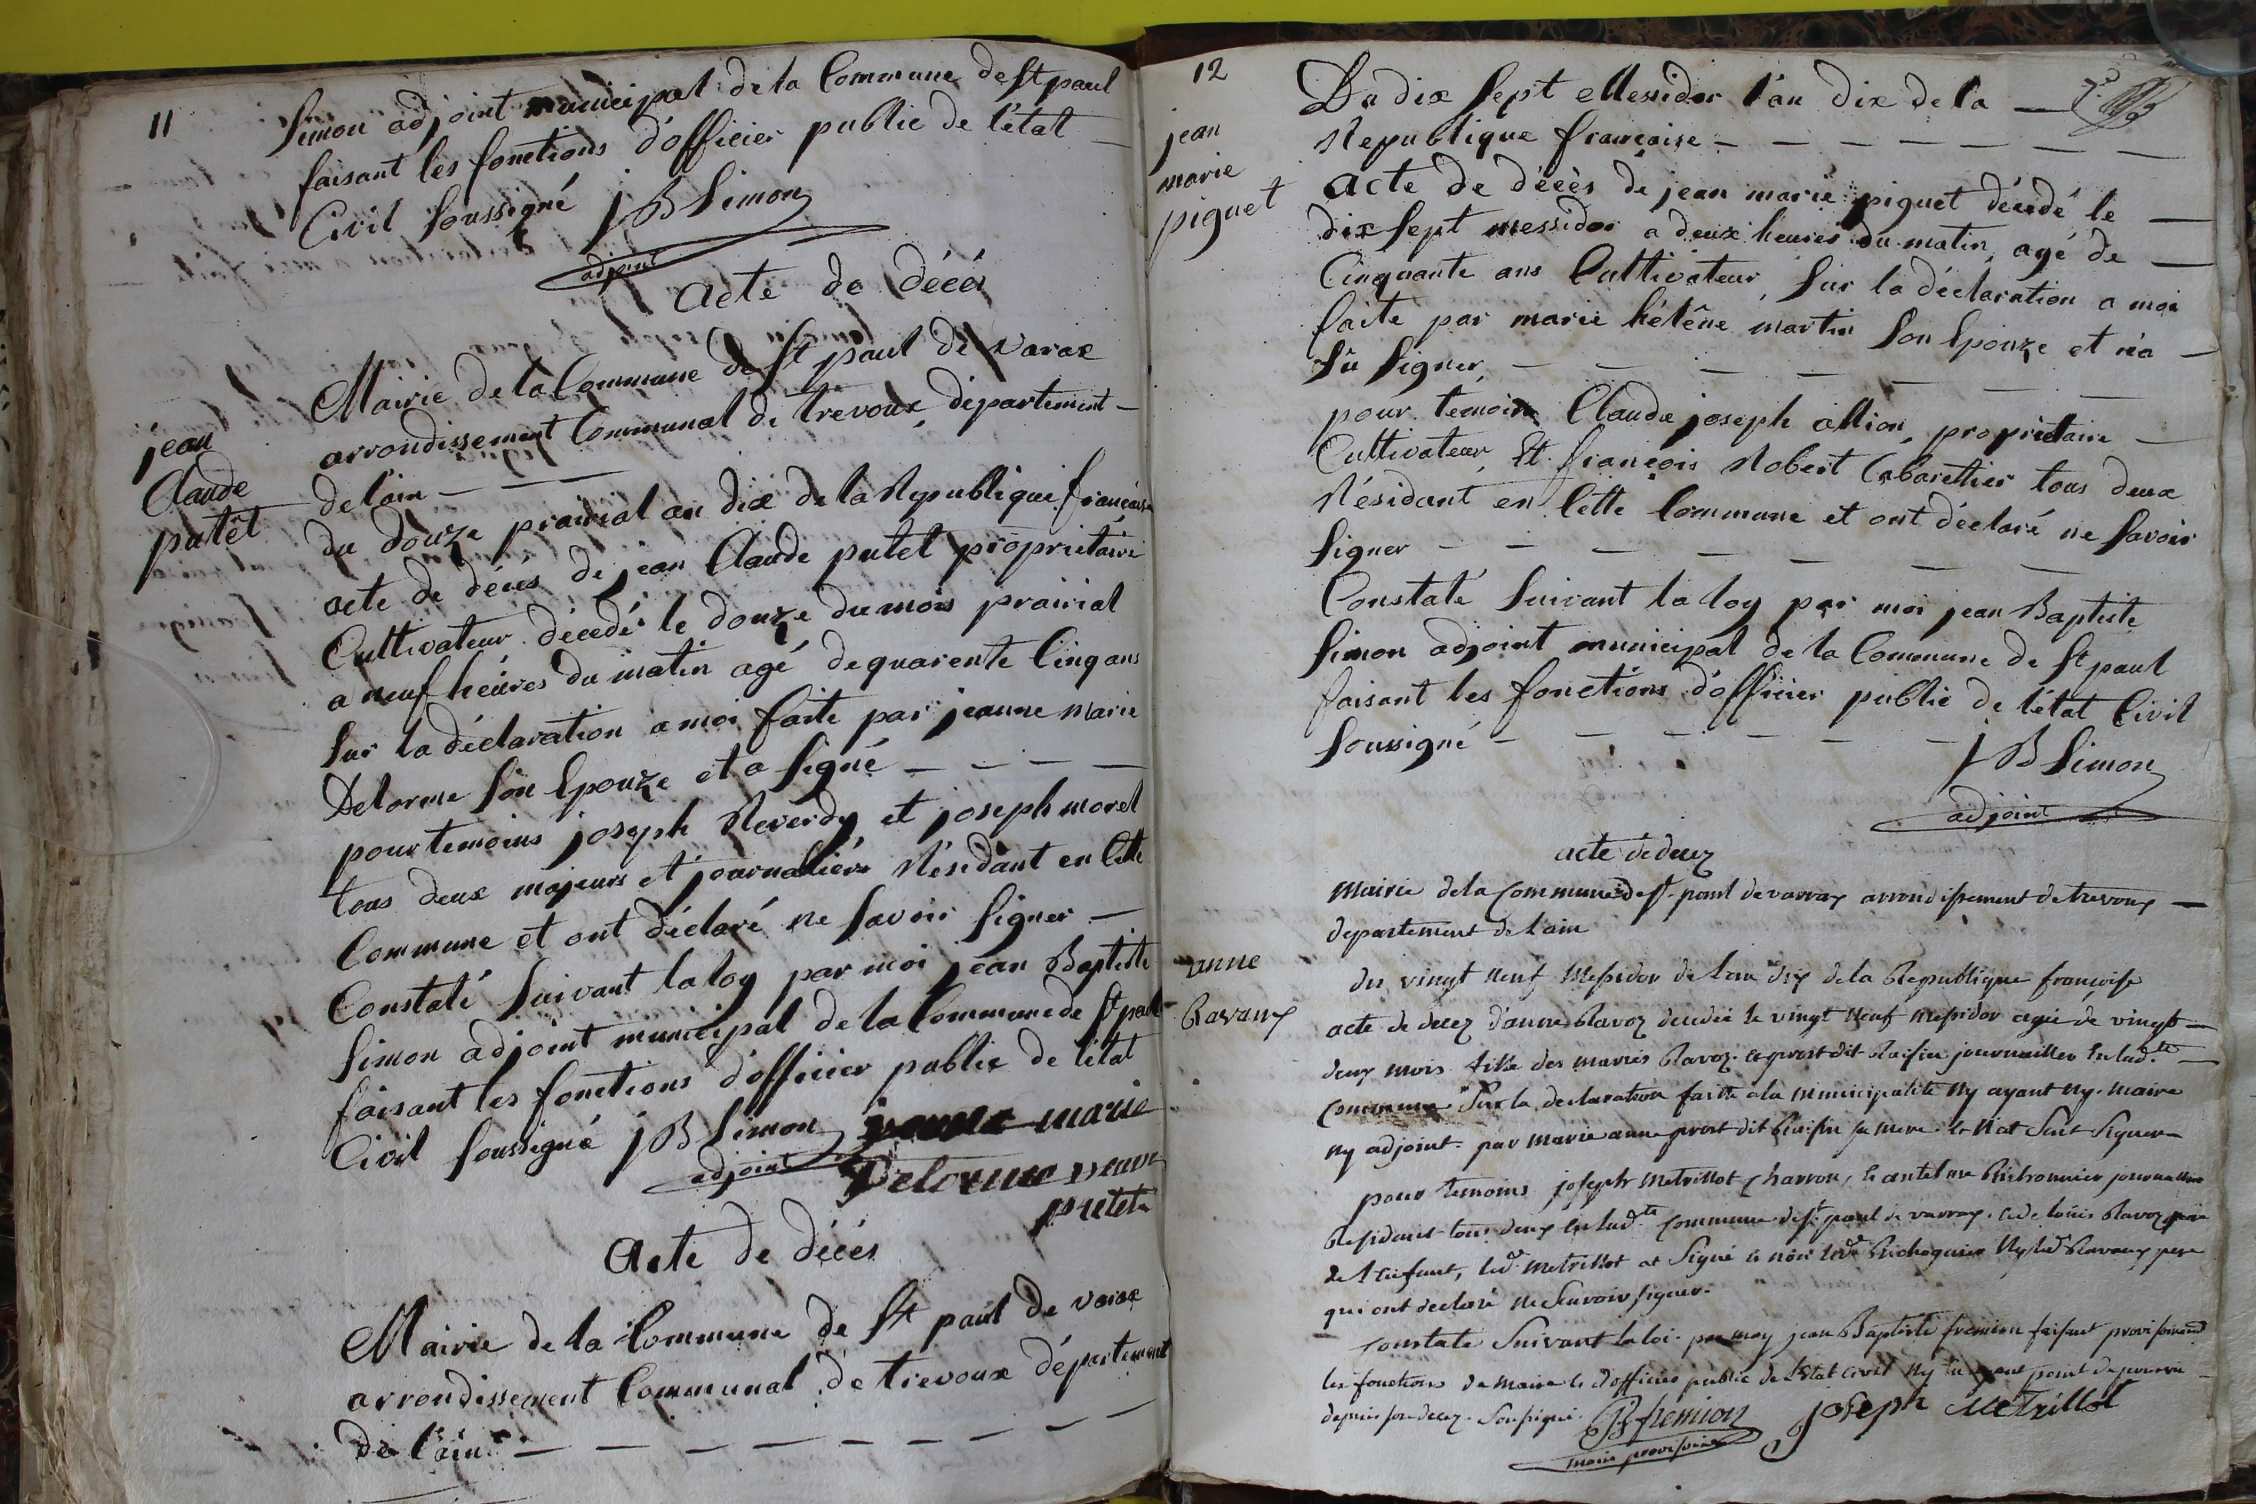 11
Simon adjoint municipal de la Commune de St paul
faisant les fonctions d'officier public de l'état
Civil soussigné J B Simon
adjoint
acte de décés
Mairie de la Commune de St paul de varax
arrondissement Communal de trevoux département
de l'ain
jean
Claude
putet
du douze prairial an dix de la Republique française
acte de décés de jean Claude putet proprietaire
Cultivateur décedé le douze du mois prairial
a neuf heures du matin agé de quarente Cinq ans
sur la déclaration a moi faite par jeanne marie
Delorme son Epouze et a signé
pour temoins joseph Reverdy et joseph morel
tous deux majeurs et journaliers Résidant en Cette
Commune et ont déclaré ne savoir signer
Constaté suivant la loy par moi jean Baptiste
Simon adjoint municipal de la Commune de St paul
faisant les fonctions d'officier public de l'état
Civil soussigné J B Simon jeanne marie
adjoint Delorme veuve
putet
Acte de décés
Mairie de la Commune de St paul de varax
arrondissement Communal de trevoux département
de l'ain
12
jean
marie
piguet
Du dix sept Messidor l'an dix de la
Republique française
acte de décès de jean marie piguet décedé le
dix sept messidor a deux heures du matin, agé de
Cinquante ans Cultivateur, sur la déclaration a moi
faite par marie hélêne martin son Epouze et n'a
sû signer
pour temoins Claude joseph allion, proprietaire
Cultivateur, Et françois Robert Cabarettier tous deux
Résidant en Cette Commune et ont déclaré ne savoir
signer
Constaté suivant la loy par moi jean Baptiste
Simon adjoint municipal de la Commune de St paul
faisant les fonctions d'officier public de l'état Civil
soussigné
J B Simon
adjoint
acte de decez
mairie de la Commune de St. paul de varrax arrondissement de trevoux
departement de l'ain
anne
Ravaux
du vingt neuf messidor de l'an dix de la Republique françoise
acte de decez d'anne Ravoz decedée le vingt neuf messidor agée de vingt
deux mois fille des mariés Ravoz et prost dit Raisin journallier en lad.te
commune sur la declaration faitte a la municipalité ny ayant ny maire
ny adjoint par marie anne prost dit Raisin sa mere et n'at sçut signer
pour temoins joseph metrillot charron, et antelme journallier
Residants tous deux en lad.te commune de St. paul de varrax et de loüis Ravoz père
de l'enfant, led. metrillot at signé et non led. ny led. Ravaux pere
qui ont declaré ne sçavoir signer
constaté suivant la loi par moy jean Baptiste fremion faisant provisoirement
les fonctions de maire et d'officier public de l'Etat civil ny en ayant point de pourvu
depuis son decez soussigné. JB fremion joseph metrillot
maire provisoire